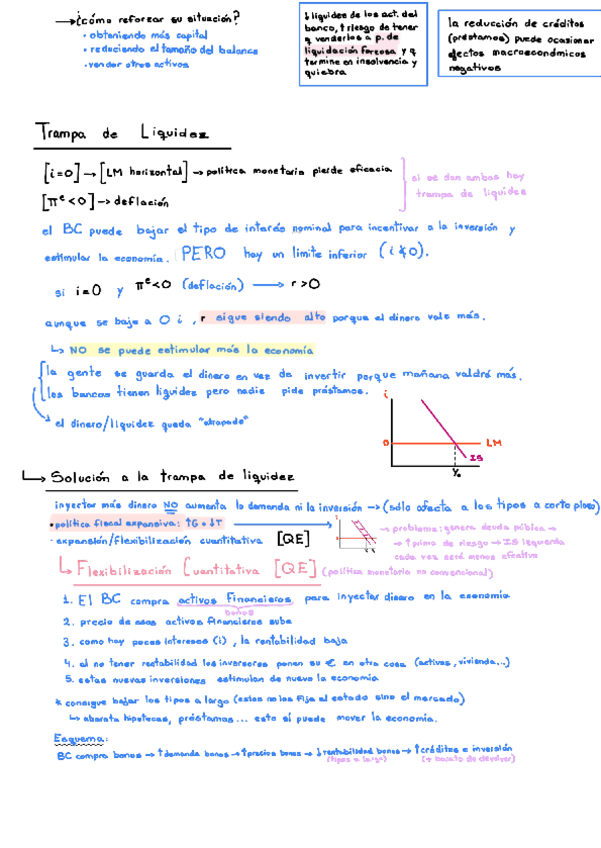 → ¿cómo reforzar su situación?
• obteniendo más capital
• reduciendo el tamaño del balance
• vender otros activos
↓ liquidez de los act. del
banco, ↑ riesgo de tener
q venderlos a p. de
liquidación forzosa y q
termine en insolvencia y
quiebra
la reducción de créditos
(préstamos) puede ocasionar
efectos macroeconómicos
negativos
Trampa de Liquidez
[i=0] → [LM horizontal] → política monetaria pierde eficacia
[πᵉ<0] → deflación
si se dan ambas hay
trampa de liquidez
el BC puede bajar el tipo de interés nominal para incentivar a la inversión y
estimular la economía. PERO hay un límite inferior (i ≮ 0).
si i=0 y πᵉ<0 (deflación) → r>0
aunque se baje a 0 i, r sigue siendo alto porque el dinero vale más.
↳ NO se puede estimular más la economía
la gente se guarda el dinero en vez de invertir porque mañana valdrá más.
los bancos tienen liquidez pero nadie pide préstamos.
el dinero/liquidez queda "atrapado"
i
0
LM
IS
Y₀
↳ Solución a la trampa de liquidez
inyectar más dinero NO aumenta la demanda ni la inversión → (sólo afecta a los tipos a corto plazo)
• política fiscal expansiva: ↑G o ↓T
→ problema: genera deuda pública →
→ ↑ prima de riesgo → IS izquierda
cada vez será menos efectiva
· expansión/flexibilización cuantitativa [QE]
↳ Flexibilización Cuantitativa [QE] (política monetaria no convencional)
1. El BC compra activos financieros para inyectar dinero en la economía
bonos
2. precio de esos activos financieros sube
3. como hay pocos intereses (i), la rentabilidad baja
4. al no tener rentabilidad los inversores ponen su € en otra cosa (activos, vivienda...)
5. estas nuevas inversiones estimulan de nuevo la economía
* consigue bajar los tipos a largo (estos no los fija el estado sino el mercado)
↳ abarata hipotecas, préstamos... esto sí puede mover la economía.
Esquema:
BC compra bonos → ↑ demanda bonos → ↑ precios bonos → ↓ rentabilidad bonos → ↑ créditos e inversión
(tipos a largo)
(+ barato de devolver)